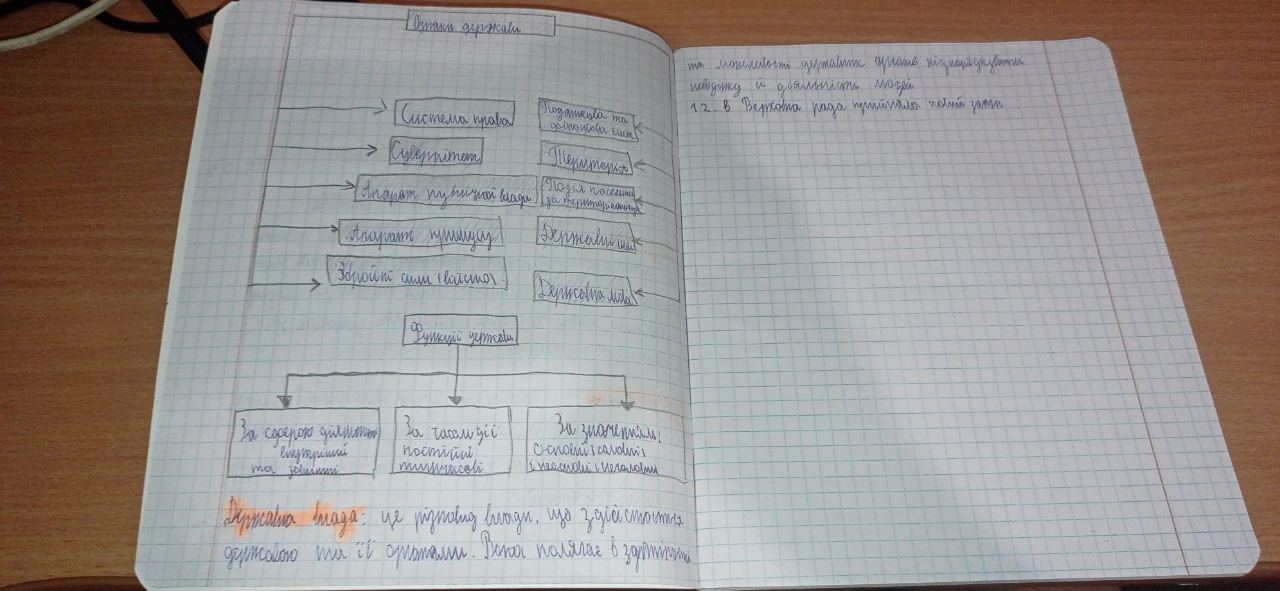 Ознаки держави
Система права
Суверенітет
Апарат публічної влади
Апарат примусу
Збройні сили (військо)
Податкова та
фінансова сист.
Територія
Поділ населення
за територіальною
Державні
Державна мова
Функції держави
За сферою діяльності
внутрішні
та зовнішні
За часом дії
постійні
тимчасові
За значенням:
основні (головні)
і неосновні (неголовні)
Державна влада: це різновид влади, що здійснюється
державою та її органами. Вона полягає в здатності
та можливості державних органів підпорядковувати
поведінку й діяльність людей
12. В Верховна рада прийняла новий закон